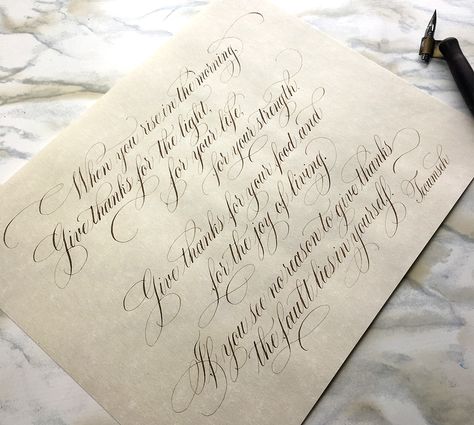 When you rise in the morning,
Give thanks for the light,
for your life,
for your strength.
Give thanks for your food and
for the joy of living.
If you see no reason to give thanks
the fault lies in yourself.
Tecumseh